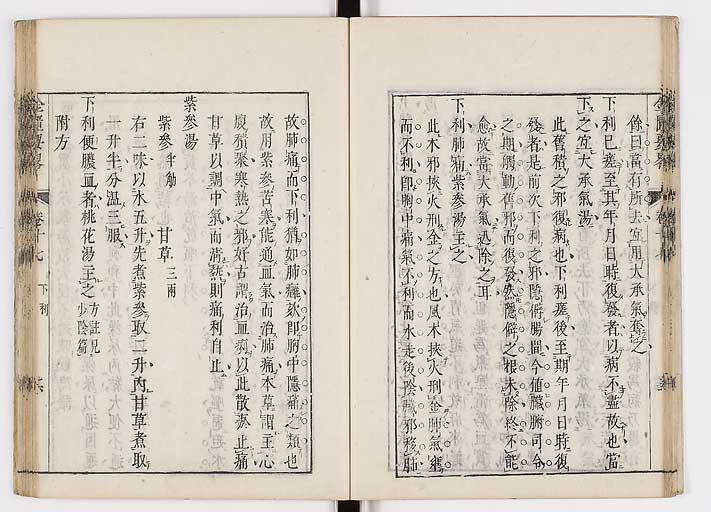 餘曰當有所去宜用大承氣奪之
下利已瘥至其年月日時復發者以病不盡故也當
下之宜大承氣湯
此舊積之邪復病也下利瘥後至期年月日時復
發者是前次下利之邪隱僻腸間今值臟腑司令
之期觸動舊邪而復發然隱僻之根未除終不能
愈故當大承氣迅除之耳
下利肺痛紫參湯主之
此木邪挾火刑金之方也風木挾火刑金肺氣壅
而不利即胸中痛氣不利而水走後陰臟邪移肺
故肺痛而下利猶如肺癰欬即胸中隱痛之類也
故用紫參苦寒能通血氣而治肺痛本草謂主心
腹積聚寒熱之邪好古謂治血痢以此散瘀止痛
甘草以調中氣而清熱則痛利自止
紫參湯
紫參半觔 甘草三兩
右二味以水五升先煮紫參取二升內甘草煮取
一升半分溫三服
下利便膿血者桃花湯主之方註見少陰篇
附方
金匱要畧 卷十七 下利